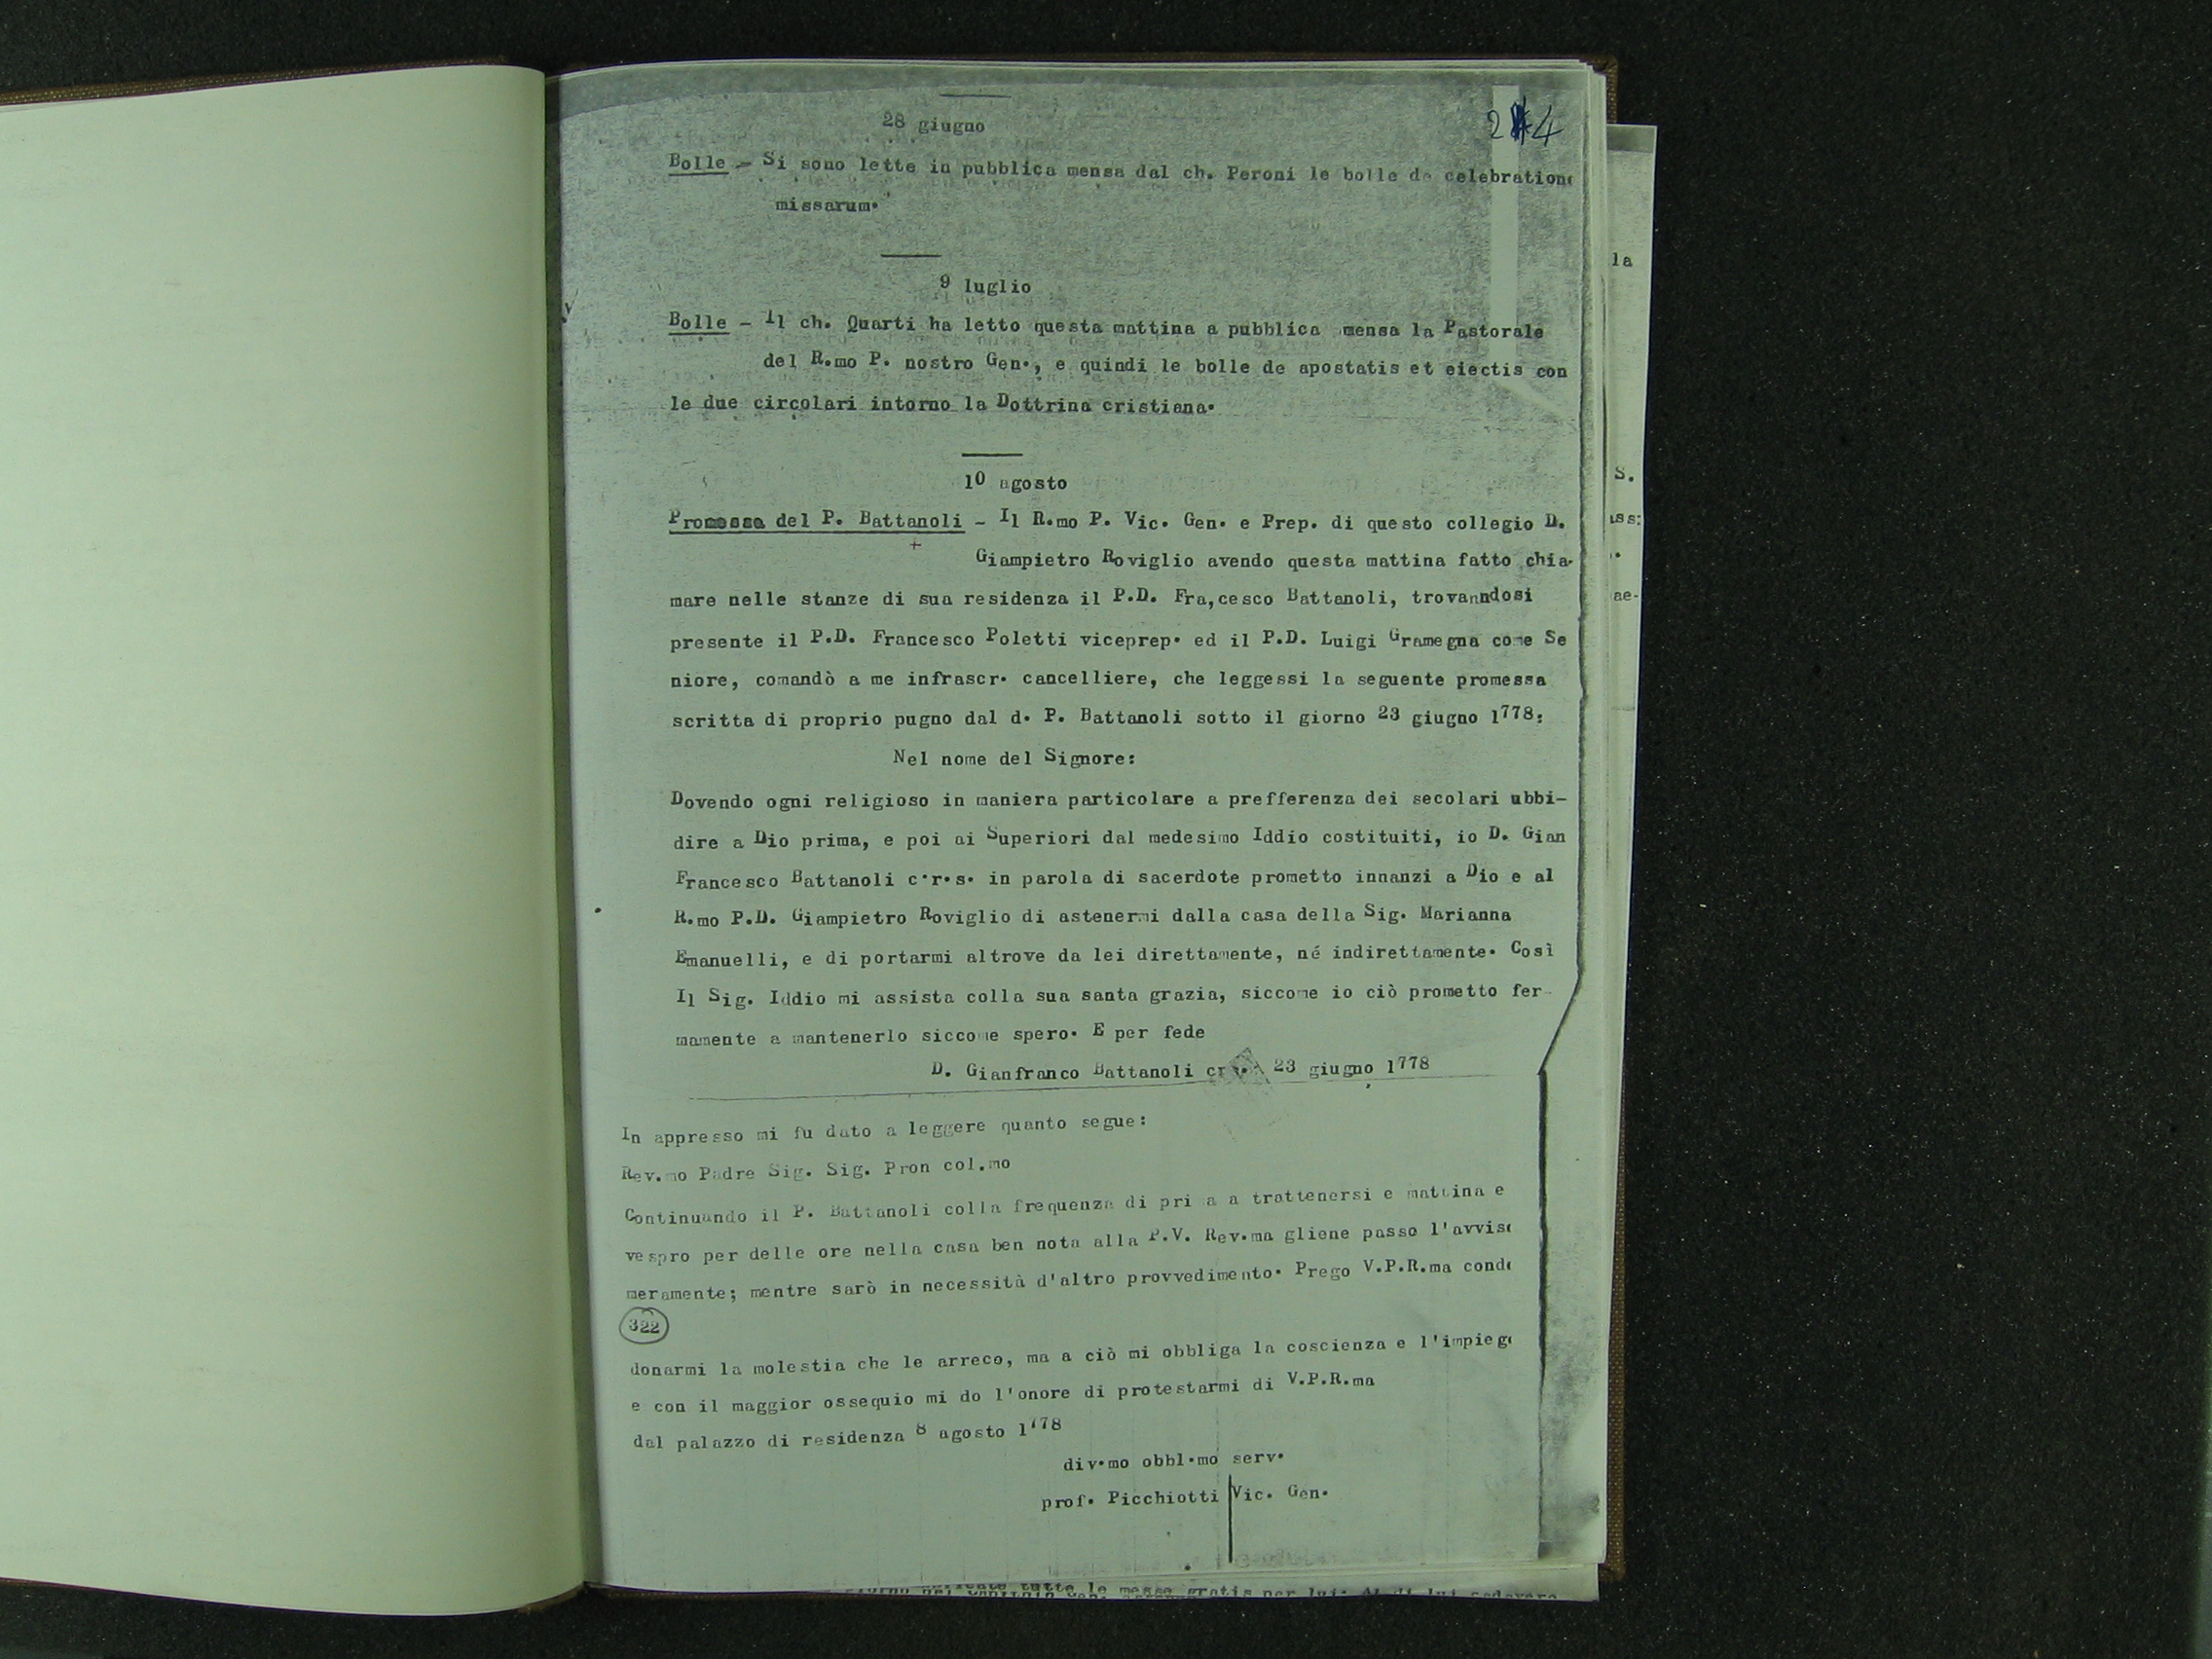 244
28 giugno
Bolle - Si sono lette in pubblica mensa dal ch. Peroni le bolle de celebration
missarum.
9 luglio
Bolle - Il ch. Quarti ha letto questa mattina a pubblica mensa la Pastorale
del R.mo P. nostro Gen., e quindi le bolle de apostatis et eiectis con
le due circolari intorno la Dottrina cristiana.
10 agosto
Promessa del P. Battanoli - Il R.mo P. Vic. Gen. e Prep. di questo collegio D.
Giampietro Roviglio avendo questa mattina fatto chia-
mare nelle stanze di sua residenza il P.D. Fra,cesco Battanoli, trovanndosi
presente il P.D. Francesco Poletti viceprep. ed il P.D. Luigi Gramegna come Se
niore, comandò a me infrascr. cancelliere, che leggessi la seguente promessa
scritta di proprio pugno dal d. P. Battanoli sotto il giorno 23 giugno 1778:
Nel nome del Signore:
Dovendo ogni religioso in maniera particolare a prefferenza dei secolari ubbi-
dire a Dio prima, e poi ai Superiori dal medesimo Iddio costituiti, io D. Gian
Francesco Battanoli c.r.s. in parola di sacerdote prometto innanzi a Dio e al
R.mo P.D. Giampietro Roviglio di astenermi dalla casa della Sig. Marianna
Emanuelli, e di portarmi altrove da lei direttamente, né indirettamente. Così
Il Sig. Iddio mi assista colla sua santa grazia, siccome io ciò prometto fer-
mamente a mantenerlo siccome spero. E per fede
D. Gianfranco Battanoli 23 giugno 1778
In appresso mi fu dato a leggere quanto segue:
Rev.mo Padre Sig. Sig. Pron col.mo
Continuando il P. Battanoli colla frequenza di pri a a trattenersi e mattina e
vespro per delle ore nella casa ben nota alla P.V. Rev.ma gliene passo l'avvis
meramente; mentre sarò in necessità d'altro provvedimento. Prego V.P.R.ma cond
322
donarmi la molestia che le arreco, ma a ciò mi obbliga la coscienza e l'impieg
e con il maggior ossequio mi do l'onore di protestarmi di V.P.R.ma
dal palazzo di residenza 8 agosto 1778
div.mo obbl.mo serv.
prof. Picchiotti Vic. Gen.
la
S.
ass:
ae-
tutte le messe gratis per lui